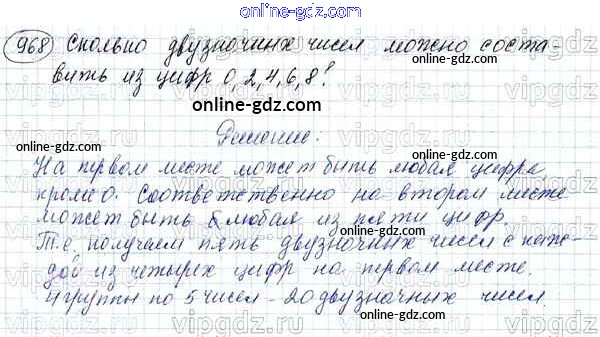 online-gdz.com
968) Сколько двузначных чисел можно соста-
вить из цифр 0, 2, 4, 6, 8?
online-gdz.com
Решение:
На первом месте может быть любая цифра,
кроме 0. Соответственно на втором месте
может быть любая из пяти цифр.
Т.е. получаем пять двузначных чисел с каж-
дой из четырех цифр на первом месте.
4 группы по 5 чисел - 20 двузначных чисел.
online-gdz.com